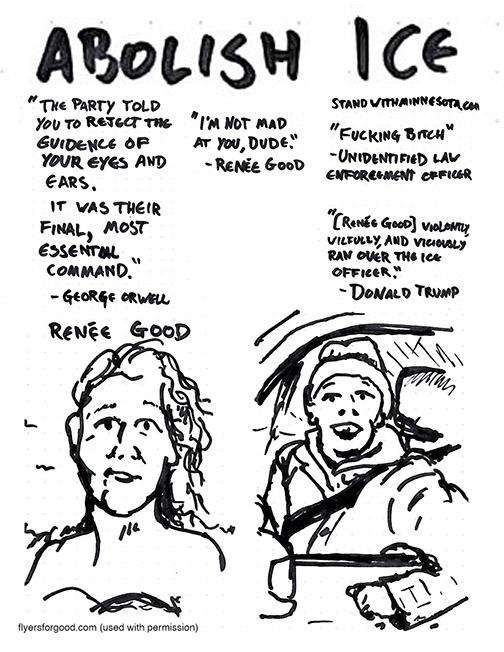 ABOLISH ICE
"THE PARTY TOLD
YOU TO REJECT THE
EVIDENCE OF
YOUR EYES AND
EARS.
IT WAS THEIR
FINAL, MOST
ESSENTIAL
COMMAND."
- GEORGE ORWELL
"I'M NOT MAD
AT YOU, DUDE."
- RENÉE GOOD
STANDWITHMINNESOTA.COM
"FUCKING BITCH"
- UNIDENTIFIED LAW
ENFORCEMENT OFFICER
"[RENÉE GOOD] VIOLENTLY,
WILLFULLY, AND VICIOUSLY
RAN OVER THE ICE
OFFICER."
- DONALD TRUMP
RENÉE GOOD
flyersforgood.com (used with permission)